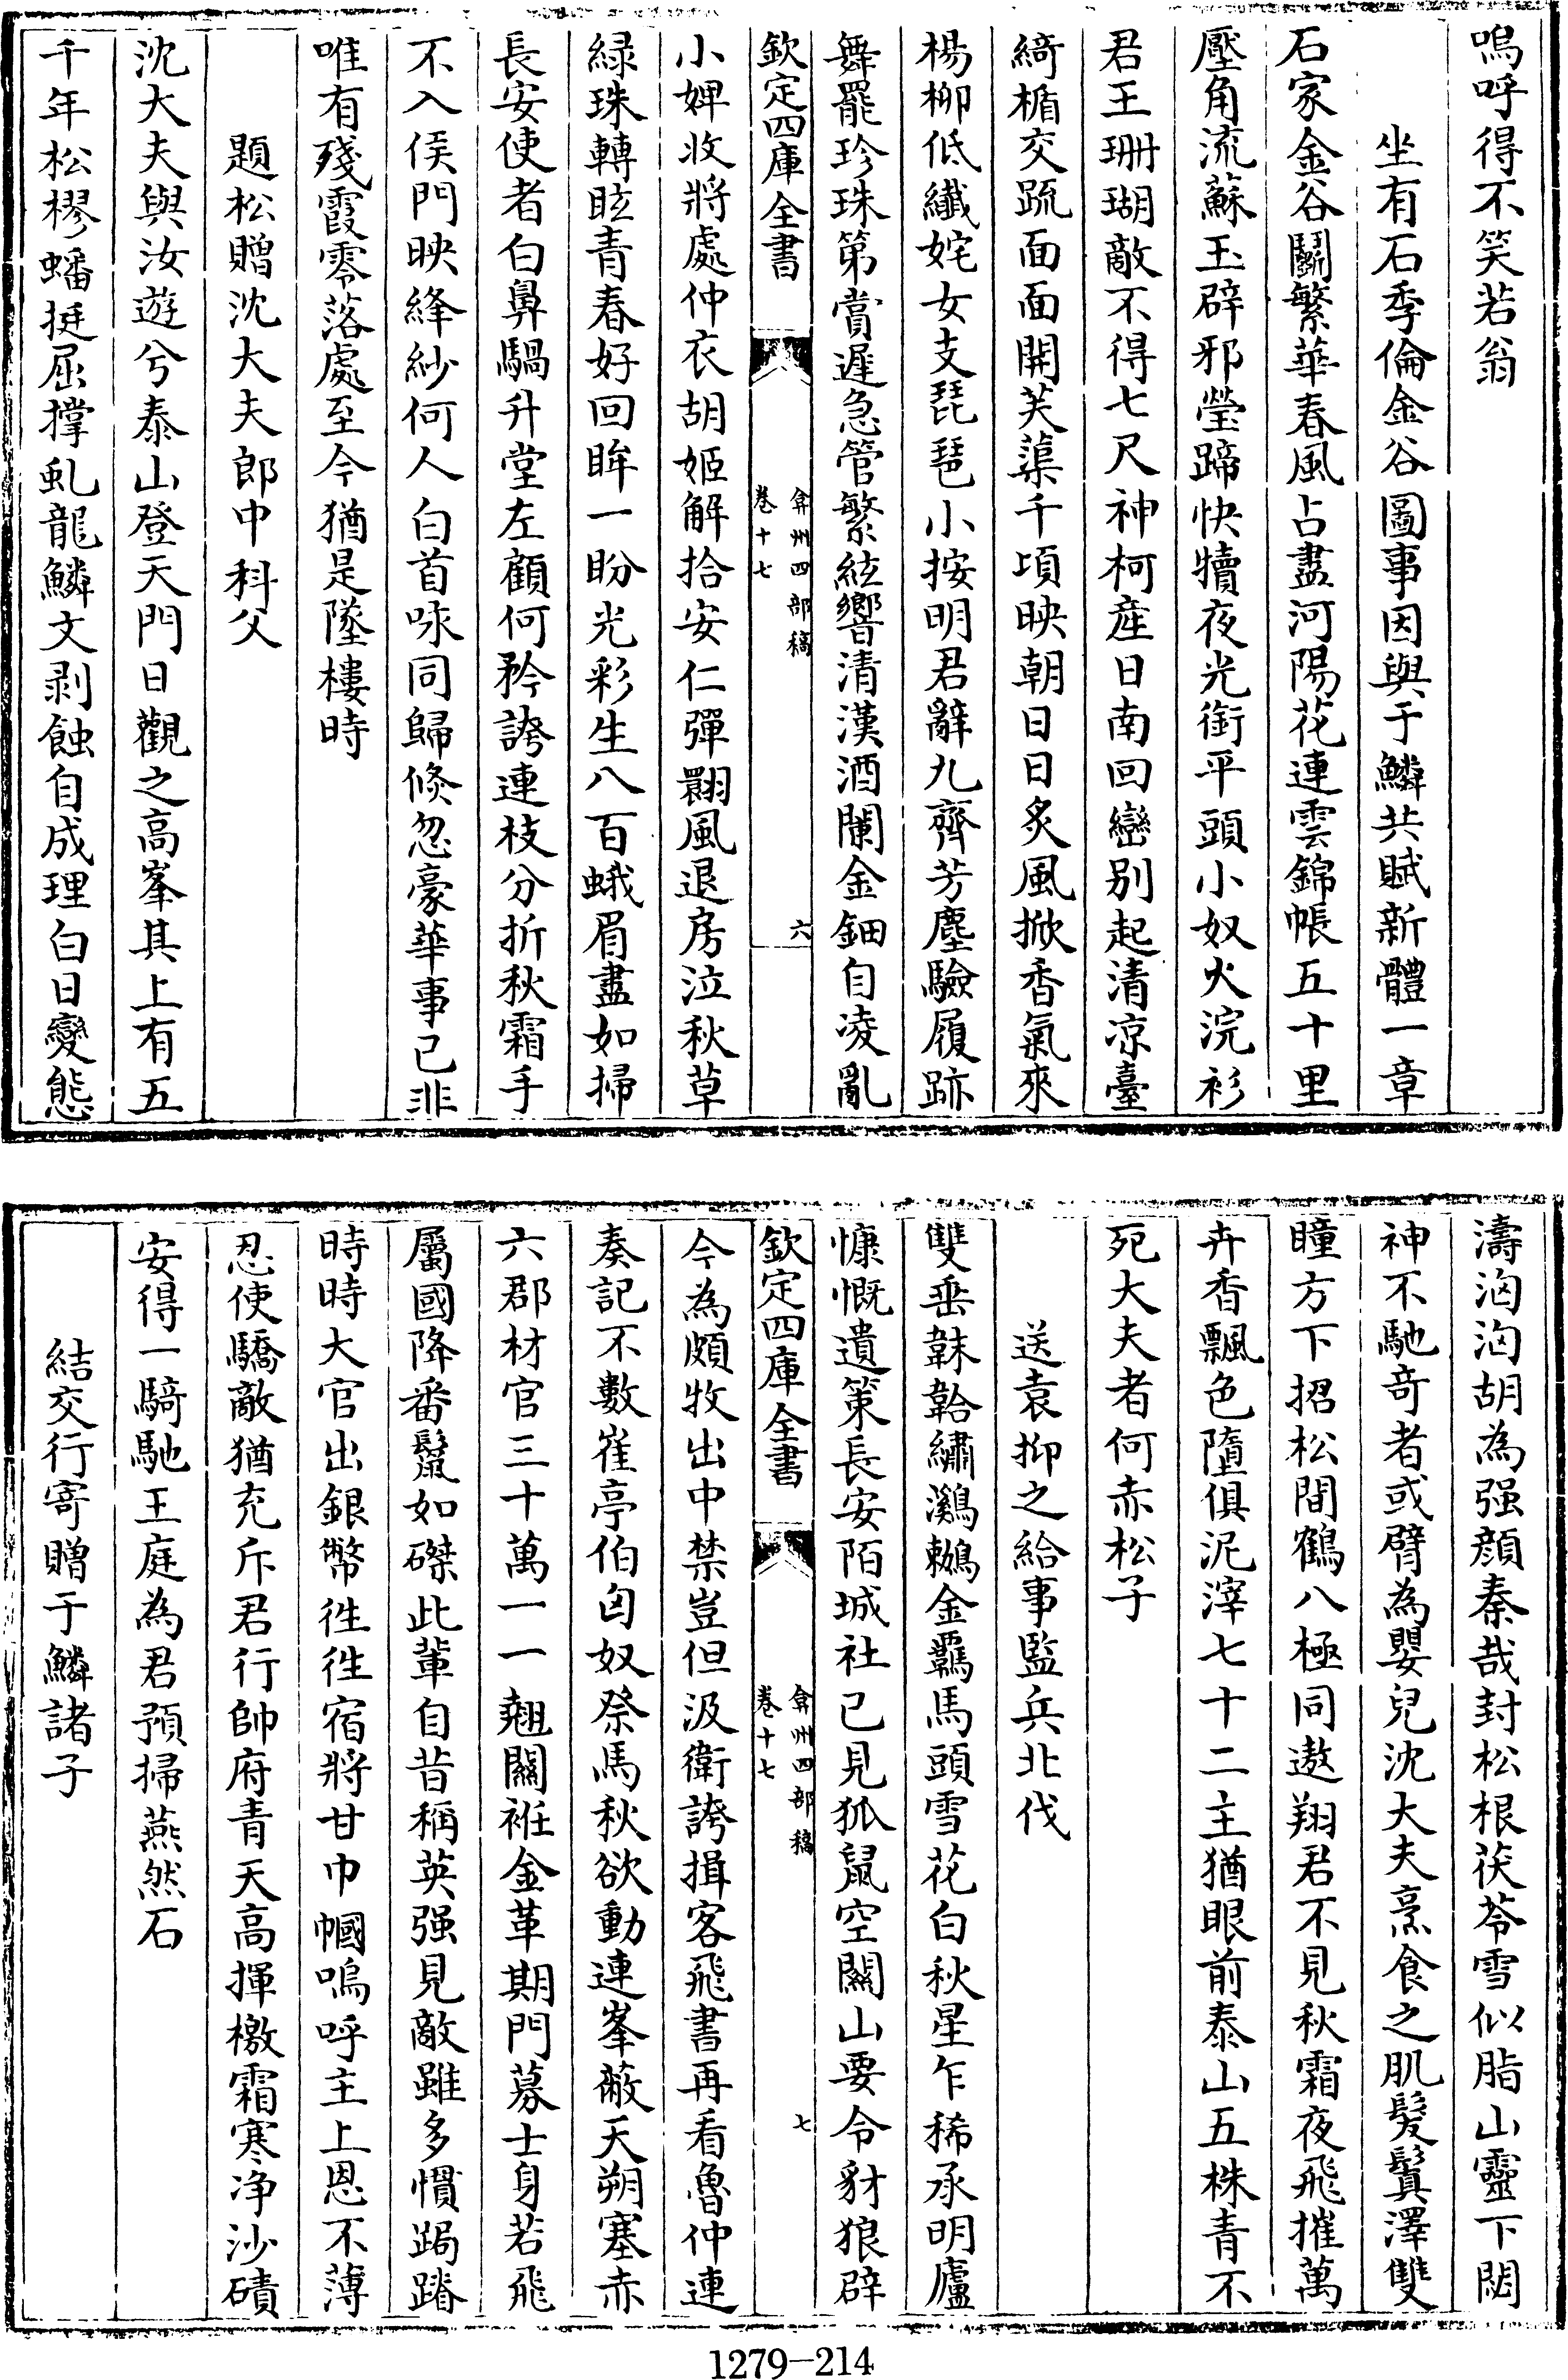 嗚呼得不笑若翁
坐有石季倫金谷圖事因與于鱗共賦新體一章
石家金谷鬭繁華春風占盡河陽花連雲錦帳五十里
壓角流蘇玉辟邪瑩蹄快犢夜光銜平頭小奴火浣衫
君王珊瑚敵不得七尺神柯産日南回巒别起清凉臺
綺楯交疏面面開芙蕖千頃映朝日日炙風掀香氣來
楊柳低纖姹女支琵琶小按明君辭九齊芳塵驗履跡
舞罷珍珠第賞遲急管繁絃響清漢酒闌金鈿自凌亂
欽定四庫全書
弇州四部稿
卷十七
六
小婢收將處仲衣胡姬解拾安仁彈翾風退房泣秋草
緑珠轉眩青春好回眸一盼光彩生八百蛾眉盡如掃
長安使者白鼻騧升堂左顧何矜誇連枝分折秋霜手
不入侯門映絳紗何人白首咏同歸倏忽豪華事已非
唯有殘霞零落處至今猶是墜樓時
題松贈沈大夫郎中科父
沈大夫與汝遊兮泰山登天門日觀之高峯其上有五
千年松樛蟠挺屈撑虬龍鱗文剥蝕自成理白日變態
濤洶洶胡為强顔秦哉封松根茯苓雪似脂山靈下閟
神不馳奇者或臂為嬰兒沈大夫烹食之肌髪鬒澤雙
瞳方下招松間鶴八極同遨翔君不見秋霜夜飛摧萬
卉香飄色墮俱泥滓七十二主猶眼前泰山五株青不
死大夫者何赤松子
送袁抑之給事監兵北伐
雙垂韎韐繡鸂鶒金覊馬頭雪花白秋星乍稀承明廬
慷慨遺策長安陌城社已見狐鼠空關山要令豺狼辟
欽定四庫全書
弇州四部稿
卷十七
七
今為頗牧出中禁豈但汲衛誇揖客飛書再看魯仲連
奏記不數崔亭伯匈奴祭馬秋欲動連峯蔽天朔塞赤
六郡材官三十萬一一翹關袵金革期門募士身若飛
屬國降番鬣如磔此軰自昔稱英强見敵雖多慣跼蹐
時時大官出銀幣徃徃宿將甘巾幗嗚呼主上恩不薄
忍使驕敵猶充斥君行帥府青天高揮檄霜寒净沙磧
安得一騎馳王庭為君預掃燕然石
結交行寄贈于鱗諸子
1279-214